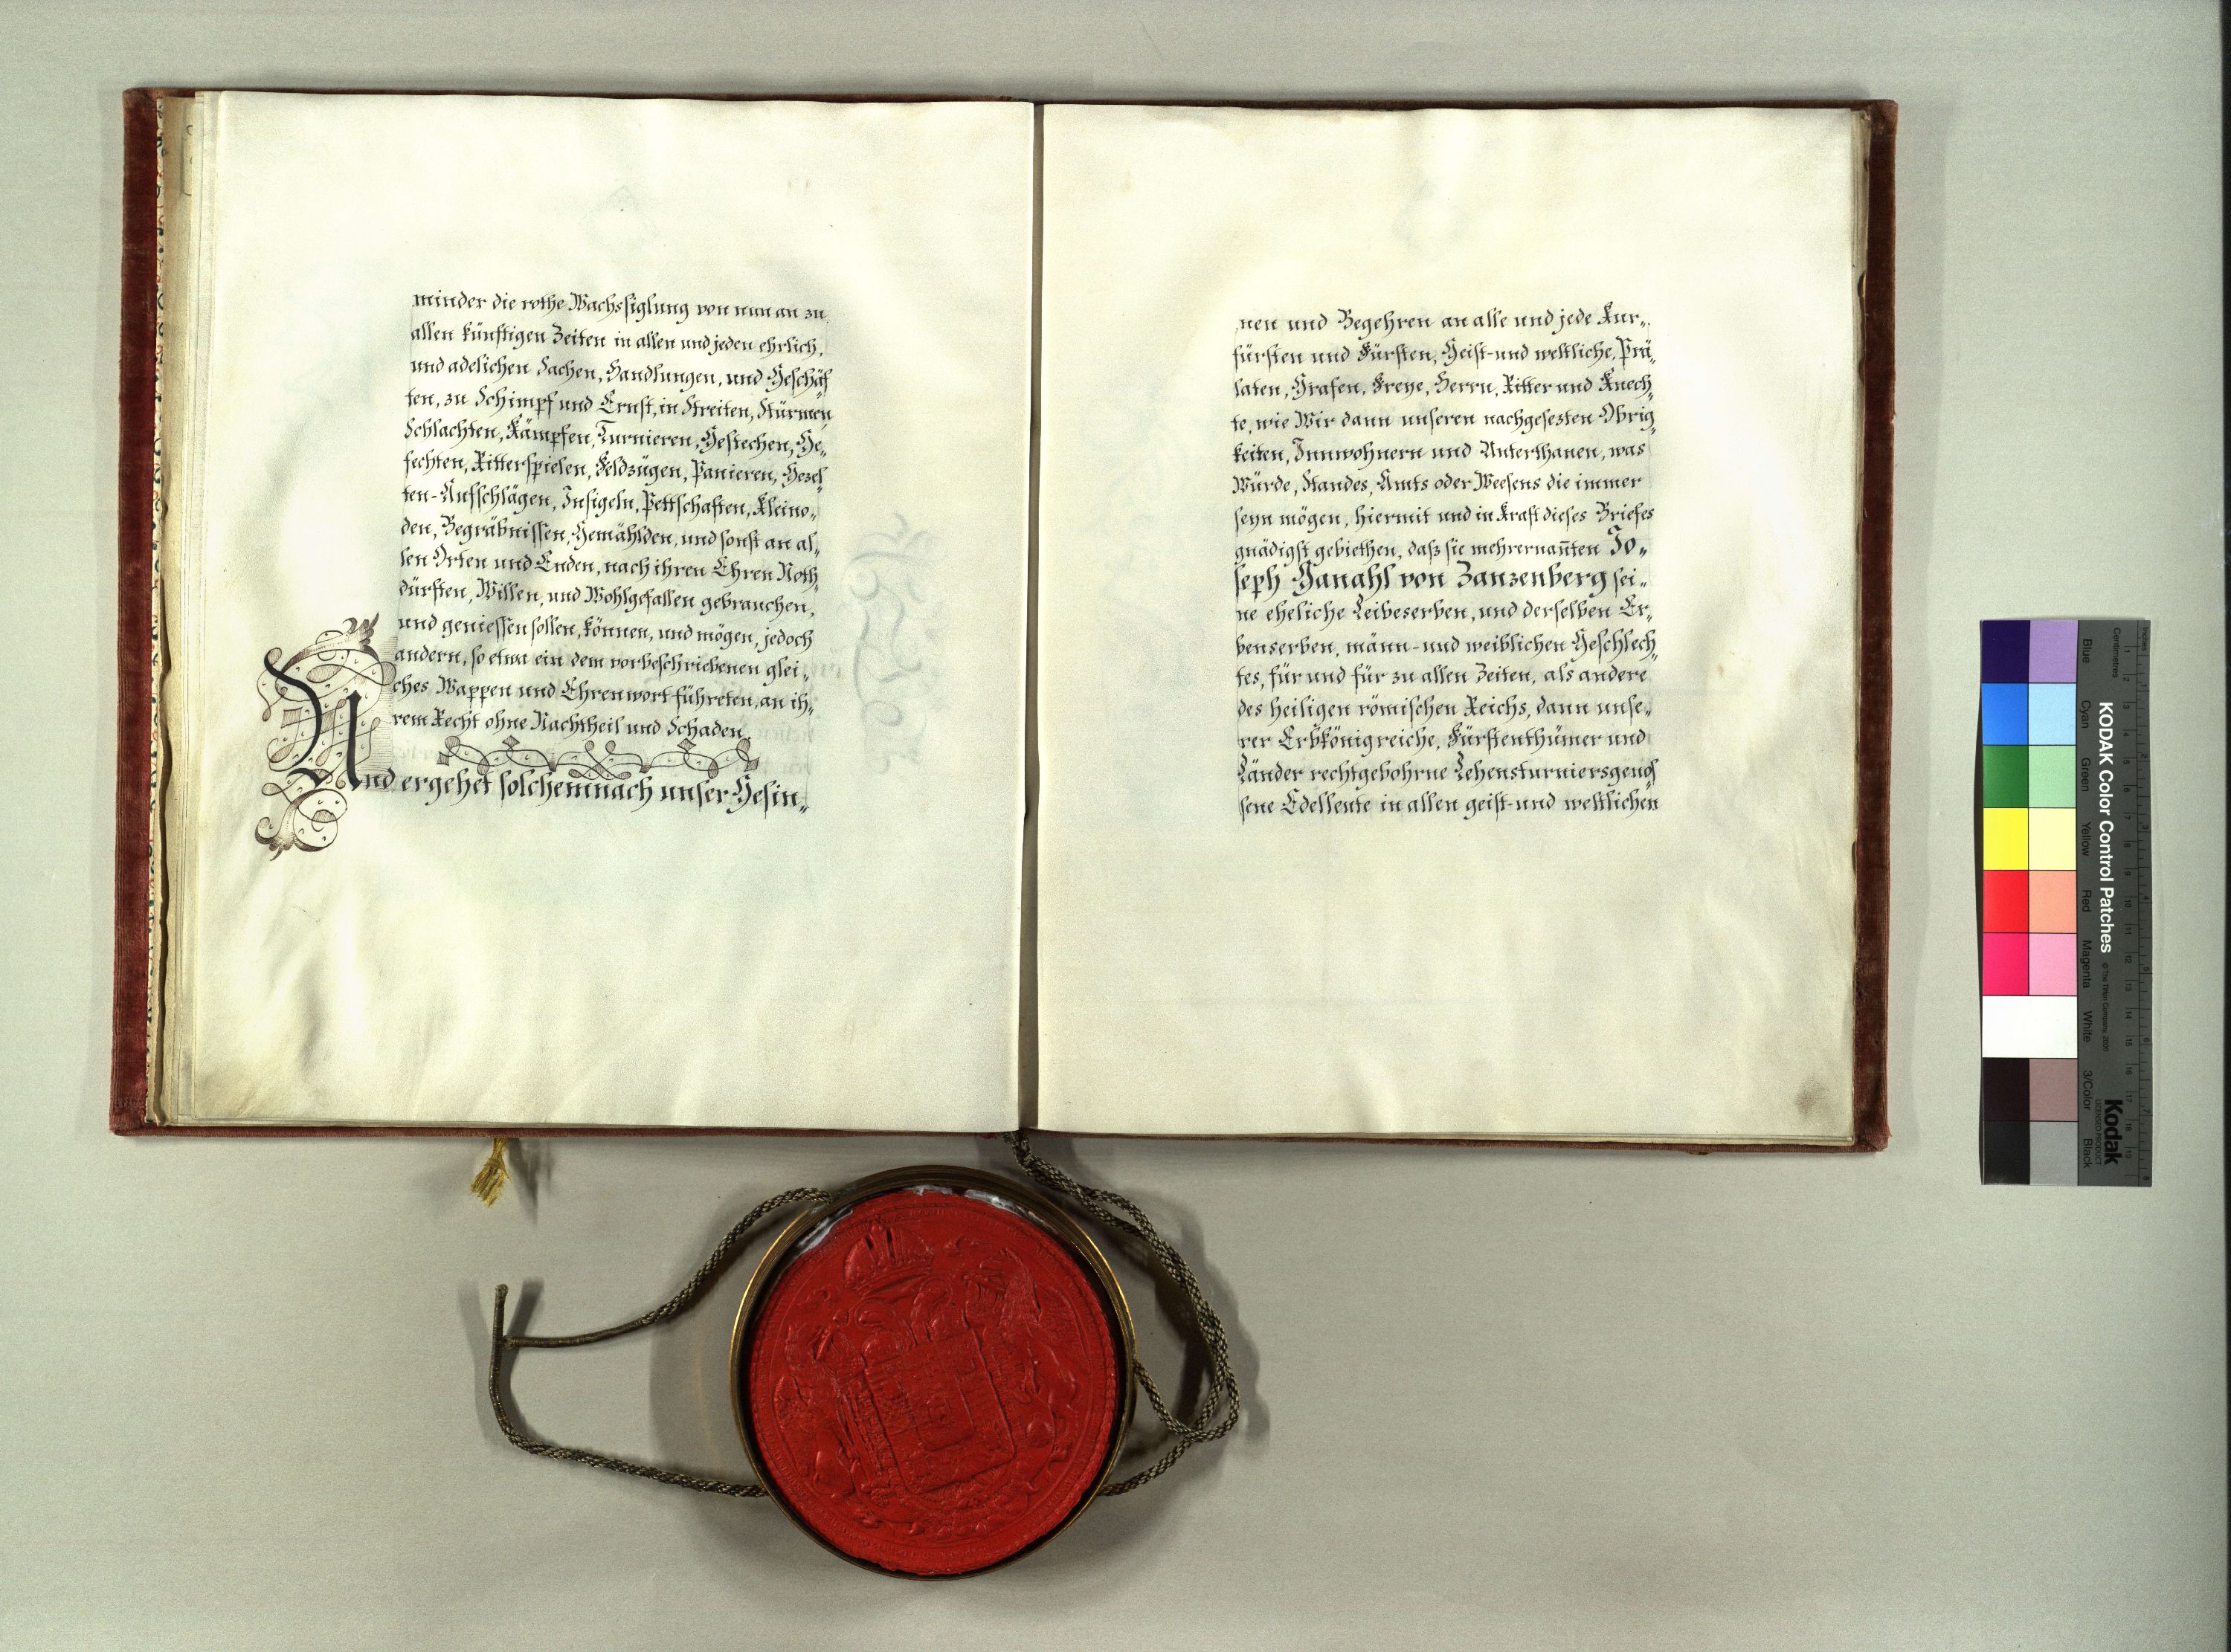 minder die rothe Wachssiglung von nun an zu
allen künftigen Zeiten in allen und jeden ehrlich,
und adelichen Sachen, Handlungen, und Geschäf„
ten, zu Schimpf und Ernst, in Streiten, Stürmen,
Schlachten, Kämpfen, Turnieren, Gestechen, Ge„
fechten, Ritterspielen, Feldzügen, Panieren, Gezel„
ten-Aufschlägen, Insigeln, Pettschaften, Kleino„
den, Begräbnissen, Gemählden, und sonst an al„
len Orten und Enden, nach ihren Ehren Noth„
dürften, Willen, und Wohlgefallen gebrauchen,
und geniessen sollen, können, und mögen, jedoch
andern, so etwa ein dem vorbeschriebenen glei„
ches Wappen und Ehrenwort führeten, an ih„
rem Recht ohne Nachtheil und Schaden.
Und ergehet solchemnach unser Gesin„
nen und Begehren an alle und jede Kur„
fürsten und Fürsten, Geist- und weltliche, Prä„
laten, Grafen, Freye, Herrn, Ritter und Knech„
te, wie Wir dann unseren nachgesezten Obrig„
keiten, Innwohnern und Unterthanen, was
Würde, Standes, Amts oder Weesens die immer
seyn mögen, hiermit und in Kraft dieses Briefes
gnädigst gebiethen, daß sie mehrernañten Jo„
seph Ganahl von Zanzenberg sei„
ne eheliche Leibeserben, und derselben Er„
benserben, männ- und weiblichen Geschlech„
tes, für und für zu allen Zeiten, als andere
des heiligen römischen Reichs, dann unse„
rer Erbkönigreiche, Fürstenthümer und
Länder rechtgebohrne Lehensturniersgenos„
sene Edelleute in allen geist- und weltlichen
KODAK Color Control Patches
© The Tiffen Company, 2001
Kodak
LICENSED PRODUCT
Inches
Centimetres
Blue
Cyan
Green
Yellow
Red
Magenta
White
3/Color
Black